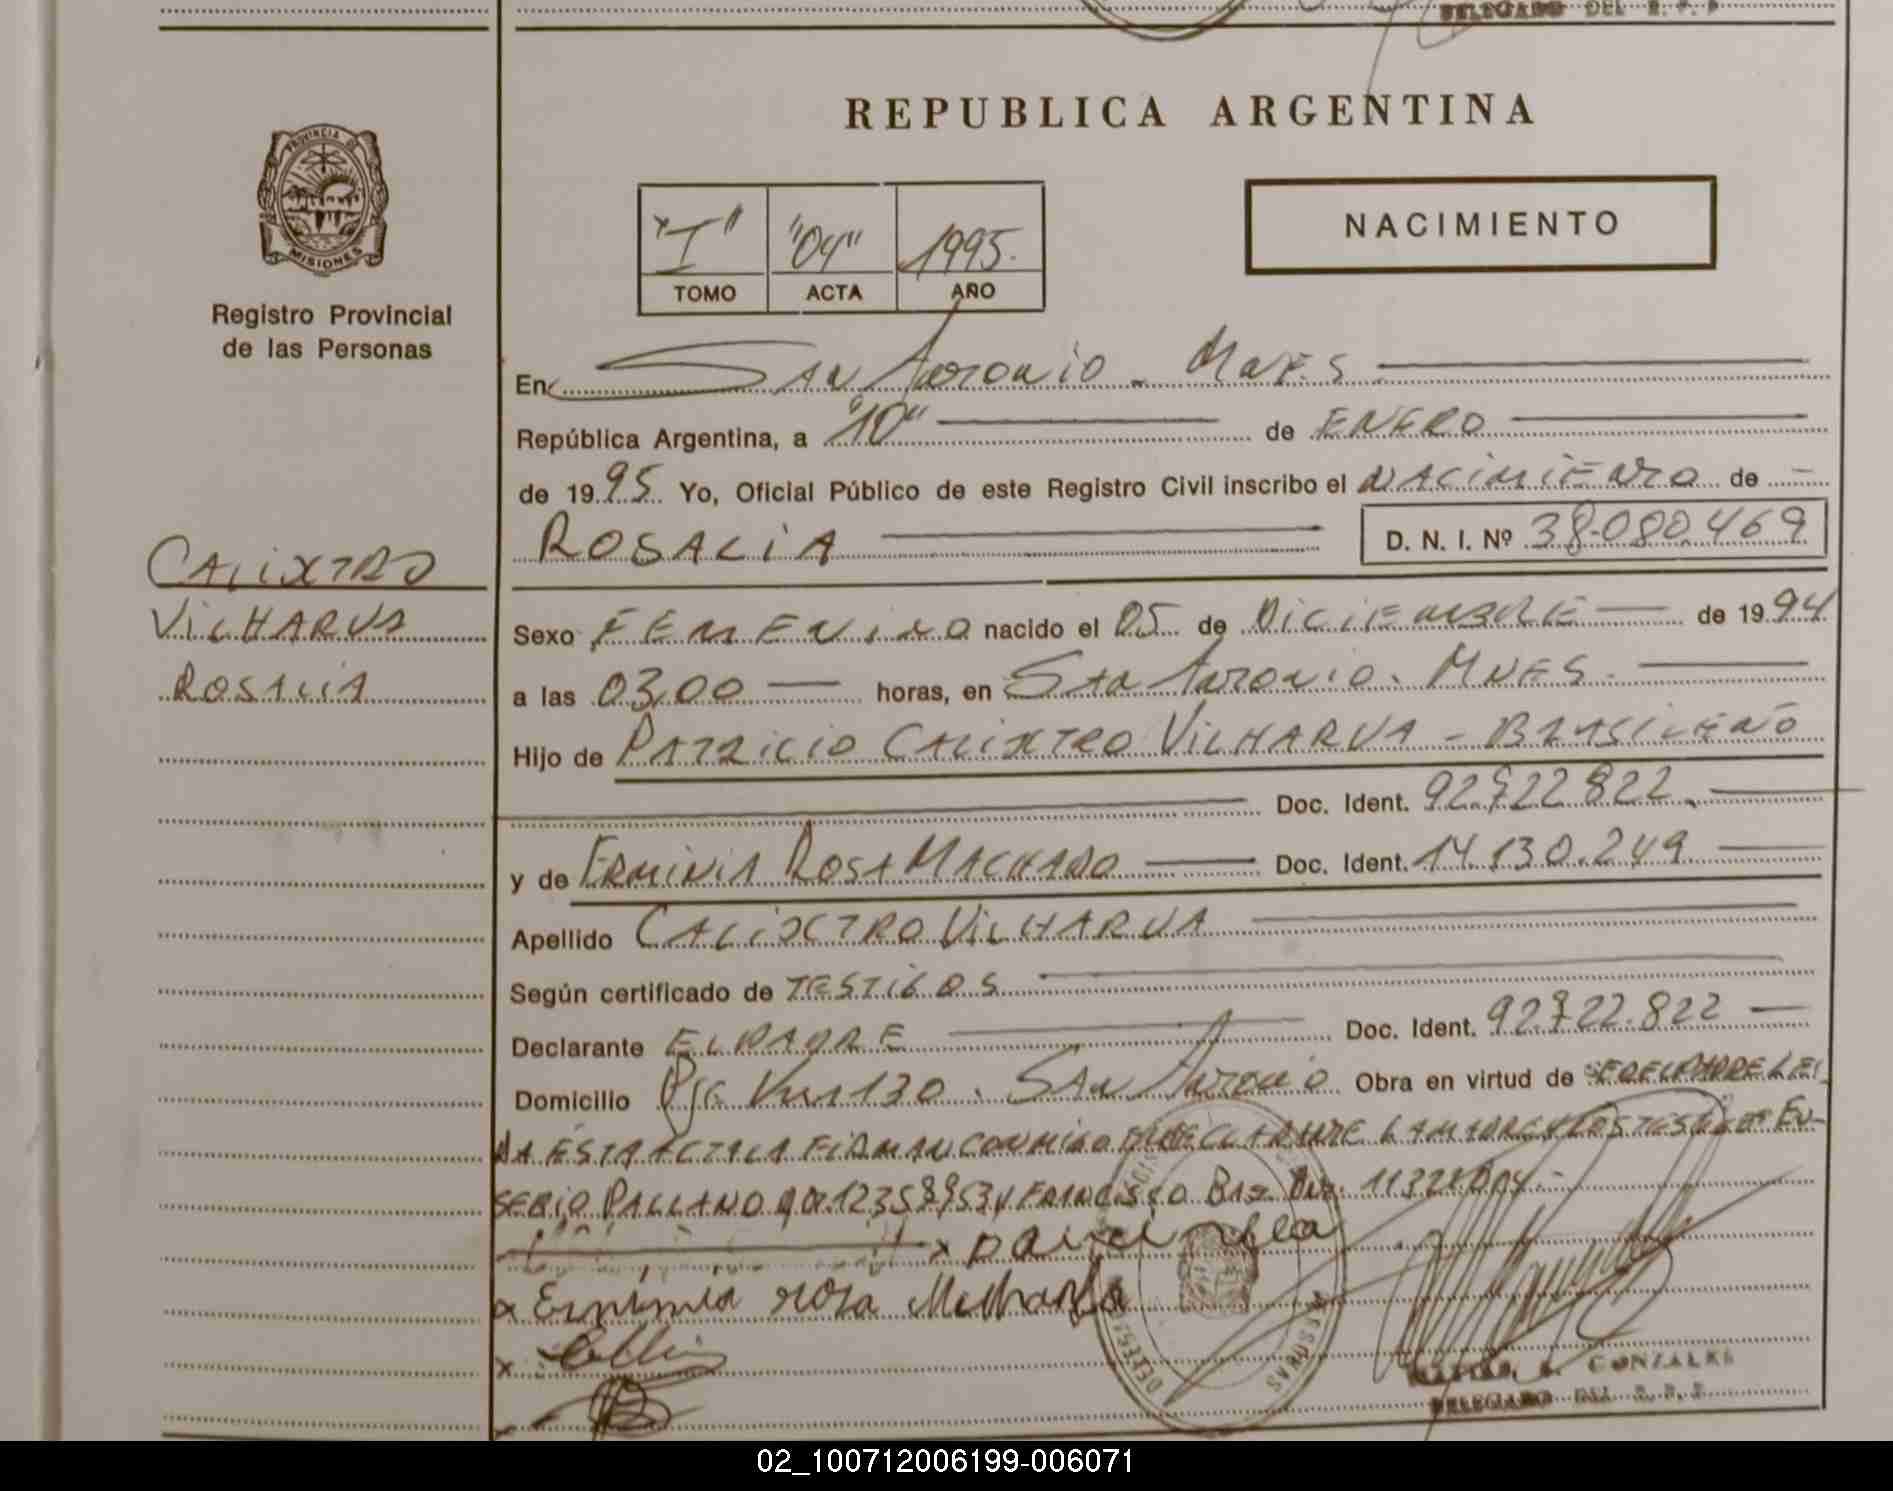 DELEGADO DEL R. P. P
REPUBLICA ARGENTINA
PROVINCIA DE
MISIONES
Registro Provincial
de las Personas
"I" "04" 1995.
TOMO ACTA AÑO
NACIMIENTO
En San Antonio - Mnes
República Argentina, a "10" de ENERO
de 1995 Yo, Oficial Público de este Registro Civil inscribo el NACIMIENTO de
ROSALIA D. N. I. Nº 38.080.469
CALIXTRO
VILHARVA
ROSALIA
Sexo FEMENINO nacido el 05 de DICIEMBRE de 1994
a las 03,00 horas, en San Antonio. MNES.
Hijo de PATRICIO CALIXTRO VILHARVA - BRASILEÑO
Doc. Ident. 92722822
y de ERMINIA ROSA MACHADO Doc. Ident. 14.130.249
Apellido CALIXTRO VILHARVA
Según certificado de TESTIGOS
Declarante EL PADRE Doc. Ident. 92722.822
Domicilio 130. San Antonio Obra en virtud de SEDELPADRE LEI
DA ESTA ACTA LA FIRMAN CONMIGO DECLARANTE LA MADRE Y LOS TESTIGOS EU-
SEBIO
x Erminia rosa Machado
x
GONZALES
DELEGADO DEL R. P. P
02_100712006199-006071